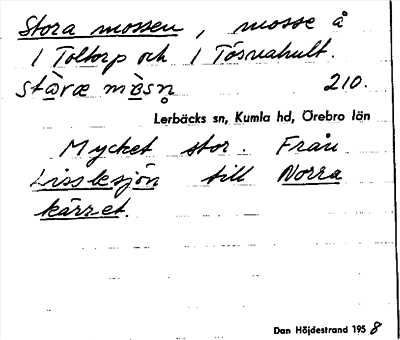 Stora mossen, mosse å
1 Toltorp och 1 Tösvahult.
stàræ màsn̥ 210.
Lerbäcks sn, Kumla hd, Örebro län
Mycket stor. Från
Lisslesjön till Norra
kärret.
Dan Höjdestrand 1958